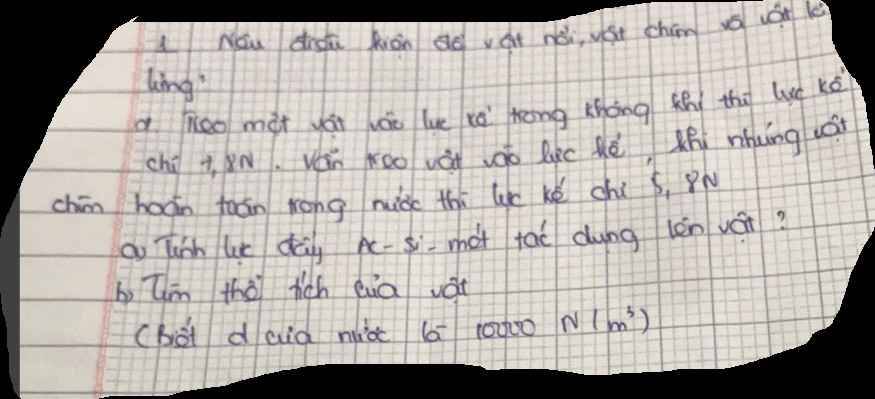 1 Nêu điều kiện để vật nổi, vật chìm và vật lơ
lửng?
2. Treo một vật vào lực kế trong không khí thì lực kế
chỉ 7,8N. Vẫn treo vật vào lực kế, khi nhúng vật
chìm hoàn toàn trong nước thì lực kế chỉ 5,8N
a) Tính lực đẩy Ac-si-mét tác dụng lên vật?
b) Tìm thể tích của vật
(Biết d của nước là 10000 N(m³)